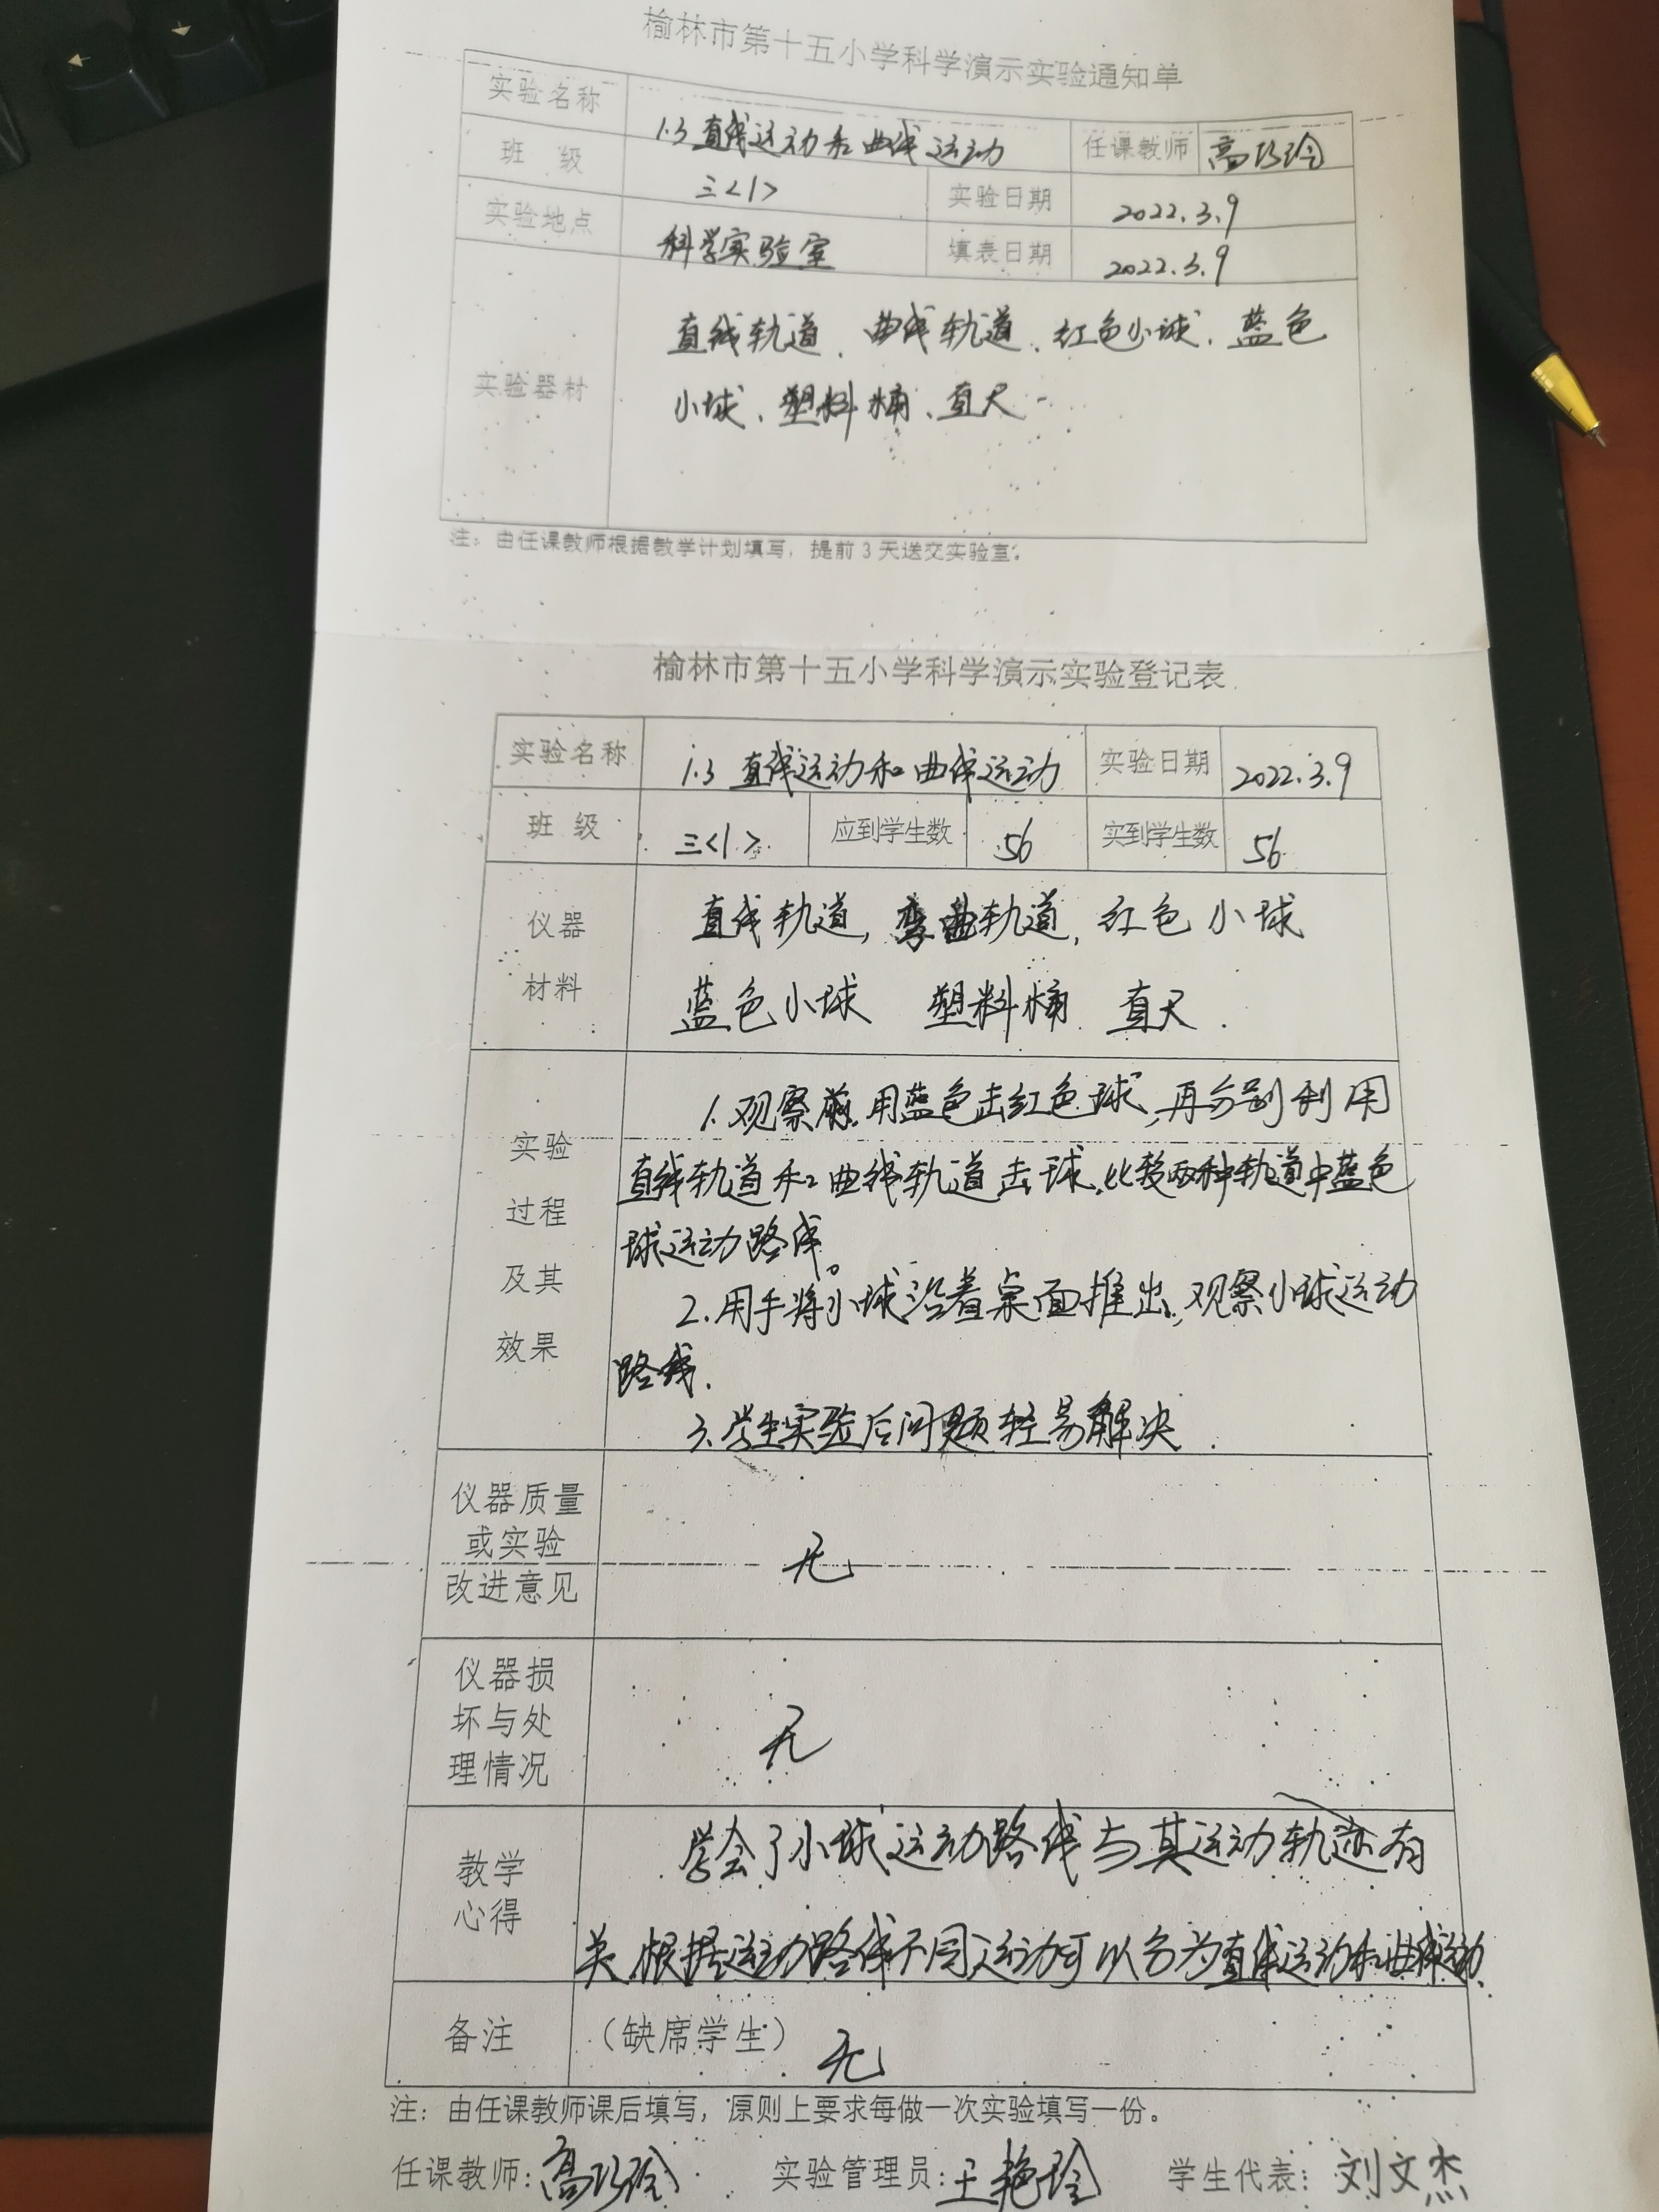 榆林市第十五小学科学演示实验通知单
实验名称 1.3 直线运动和曲线运动 任课教师 高巧玲
班 级 三<1> 实验日期 2022.3.9
实验地点 科学实验室 填表日期 2022.3.9
实验器材 直线轨道、曲线轨道、红色小球、蓝色
小球、塑料桶、直尺
注：由任课教师根据教学计划填写，提前 3 天送交实验室。
榆林市第十五小学科学演示实验登记表
实验名称 1.3 直线运动和曲线运动 实验日期 2022.3.9
班 级 三<1> 应到学生数 56 实到学生数 56
仪器
材料
直线轨道, 弯曲轨道, 红色小球
蓝色小球 塑料桶 直尺.
实验
过程
及其
效果
1.观察前,用蓝色击红色球,再分别利用
直线轨道和曲线轨道击球,比较两种轨道中蓝色
球运动路线。
2.用手将小球沿着桌面推出,观察小球运动
路线.
3.学生实验后问题轻易解决.
仪器质量
或实验
改进意见
无
仪器损
坏与处
理情况
无
教学
心得
学会了小球运动路线与其运动轨迹有
关,根据运动路线不同运动可以分为直线运动和曲线运动.
备注 （缺席学生） 无
注：由任课教师课后填写，原则上要求每做一次实验填写一份。
任课教师:高巧玲 实验管理员:王艳玲 学生代表：刘文杰